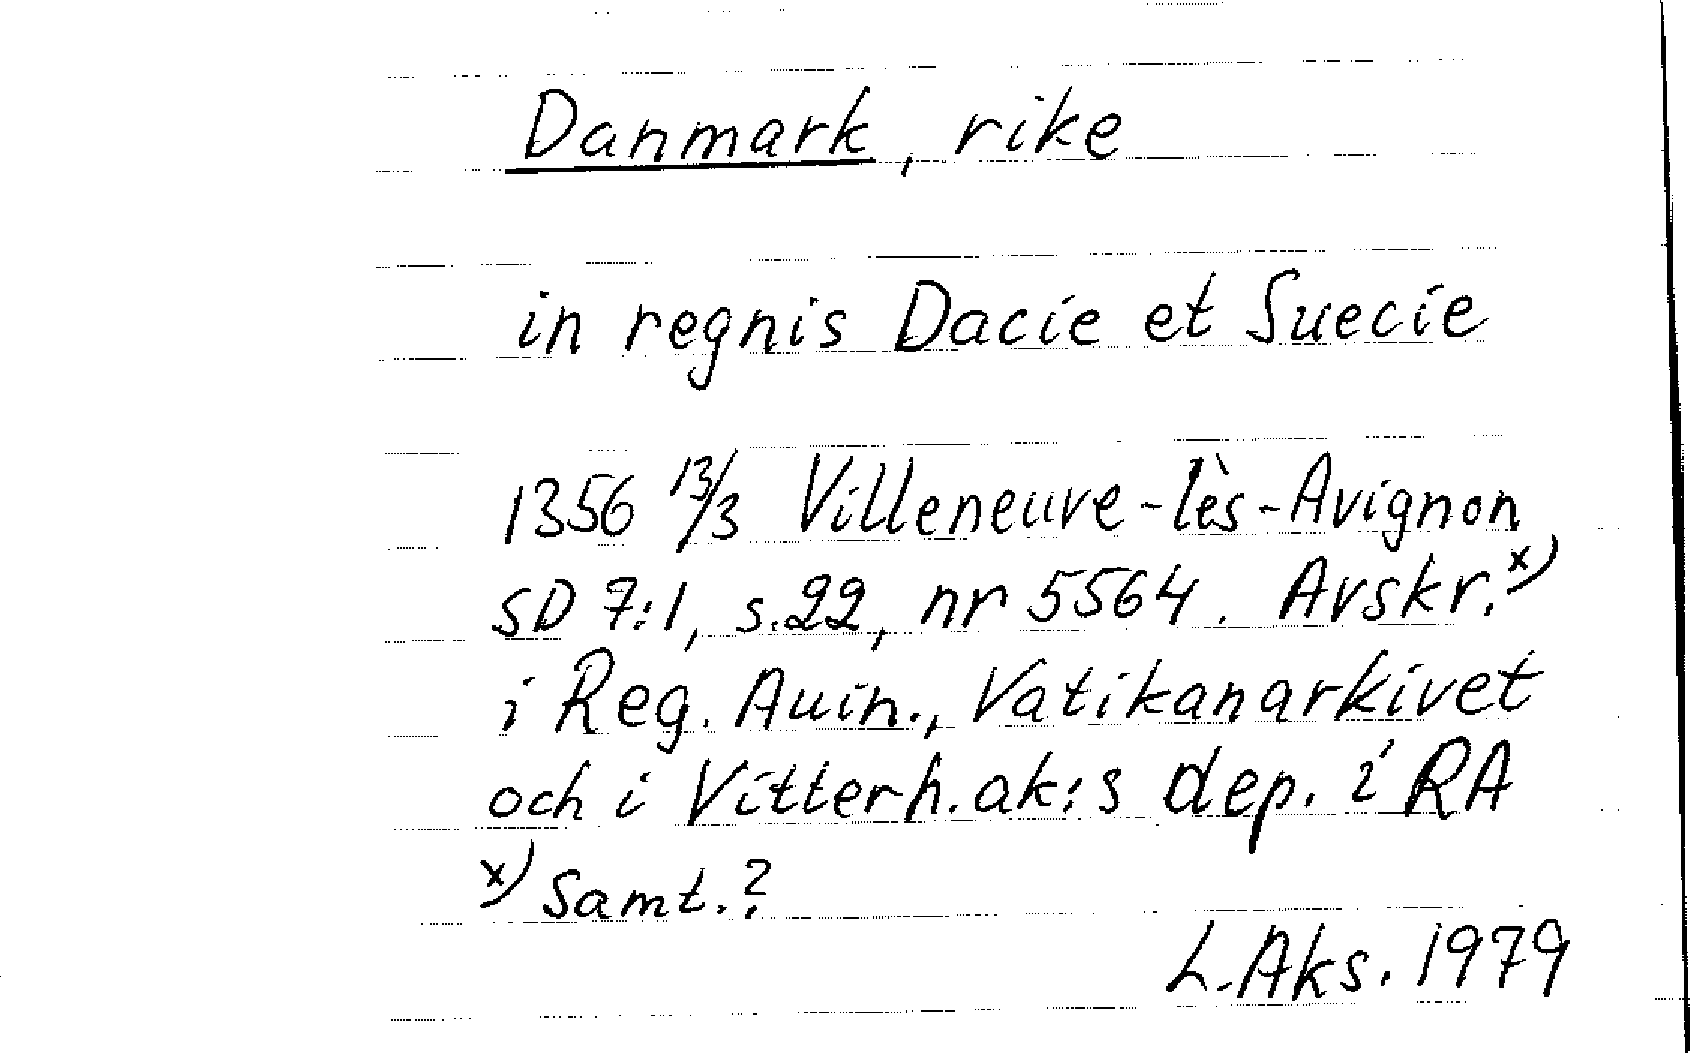 Danmark, rike
in regnis Dacie et Suecie
1356 13/3 Villeneuve-lès-Avignon
SD 7:1, s.22, nr 5564. Avskr.x)
i Reg. Auin., Vatikanarkivet
och i Vitterh.ak:s dep. i RA
x) Samt.?
L.Aks. 1979